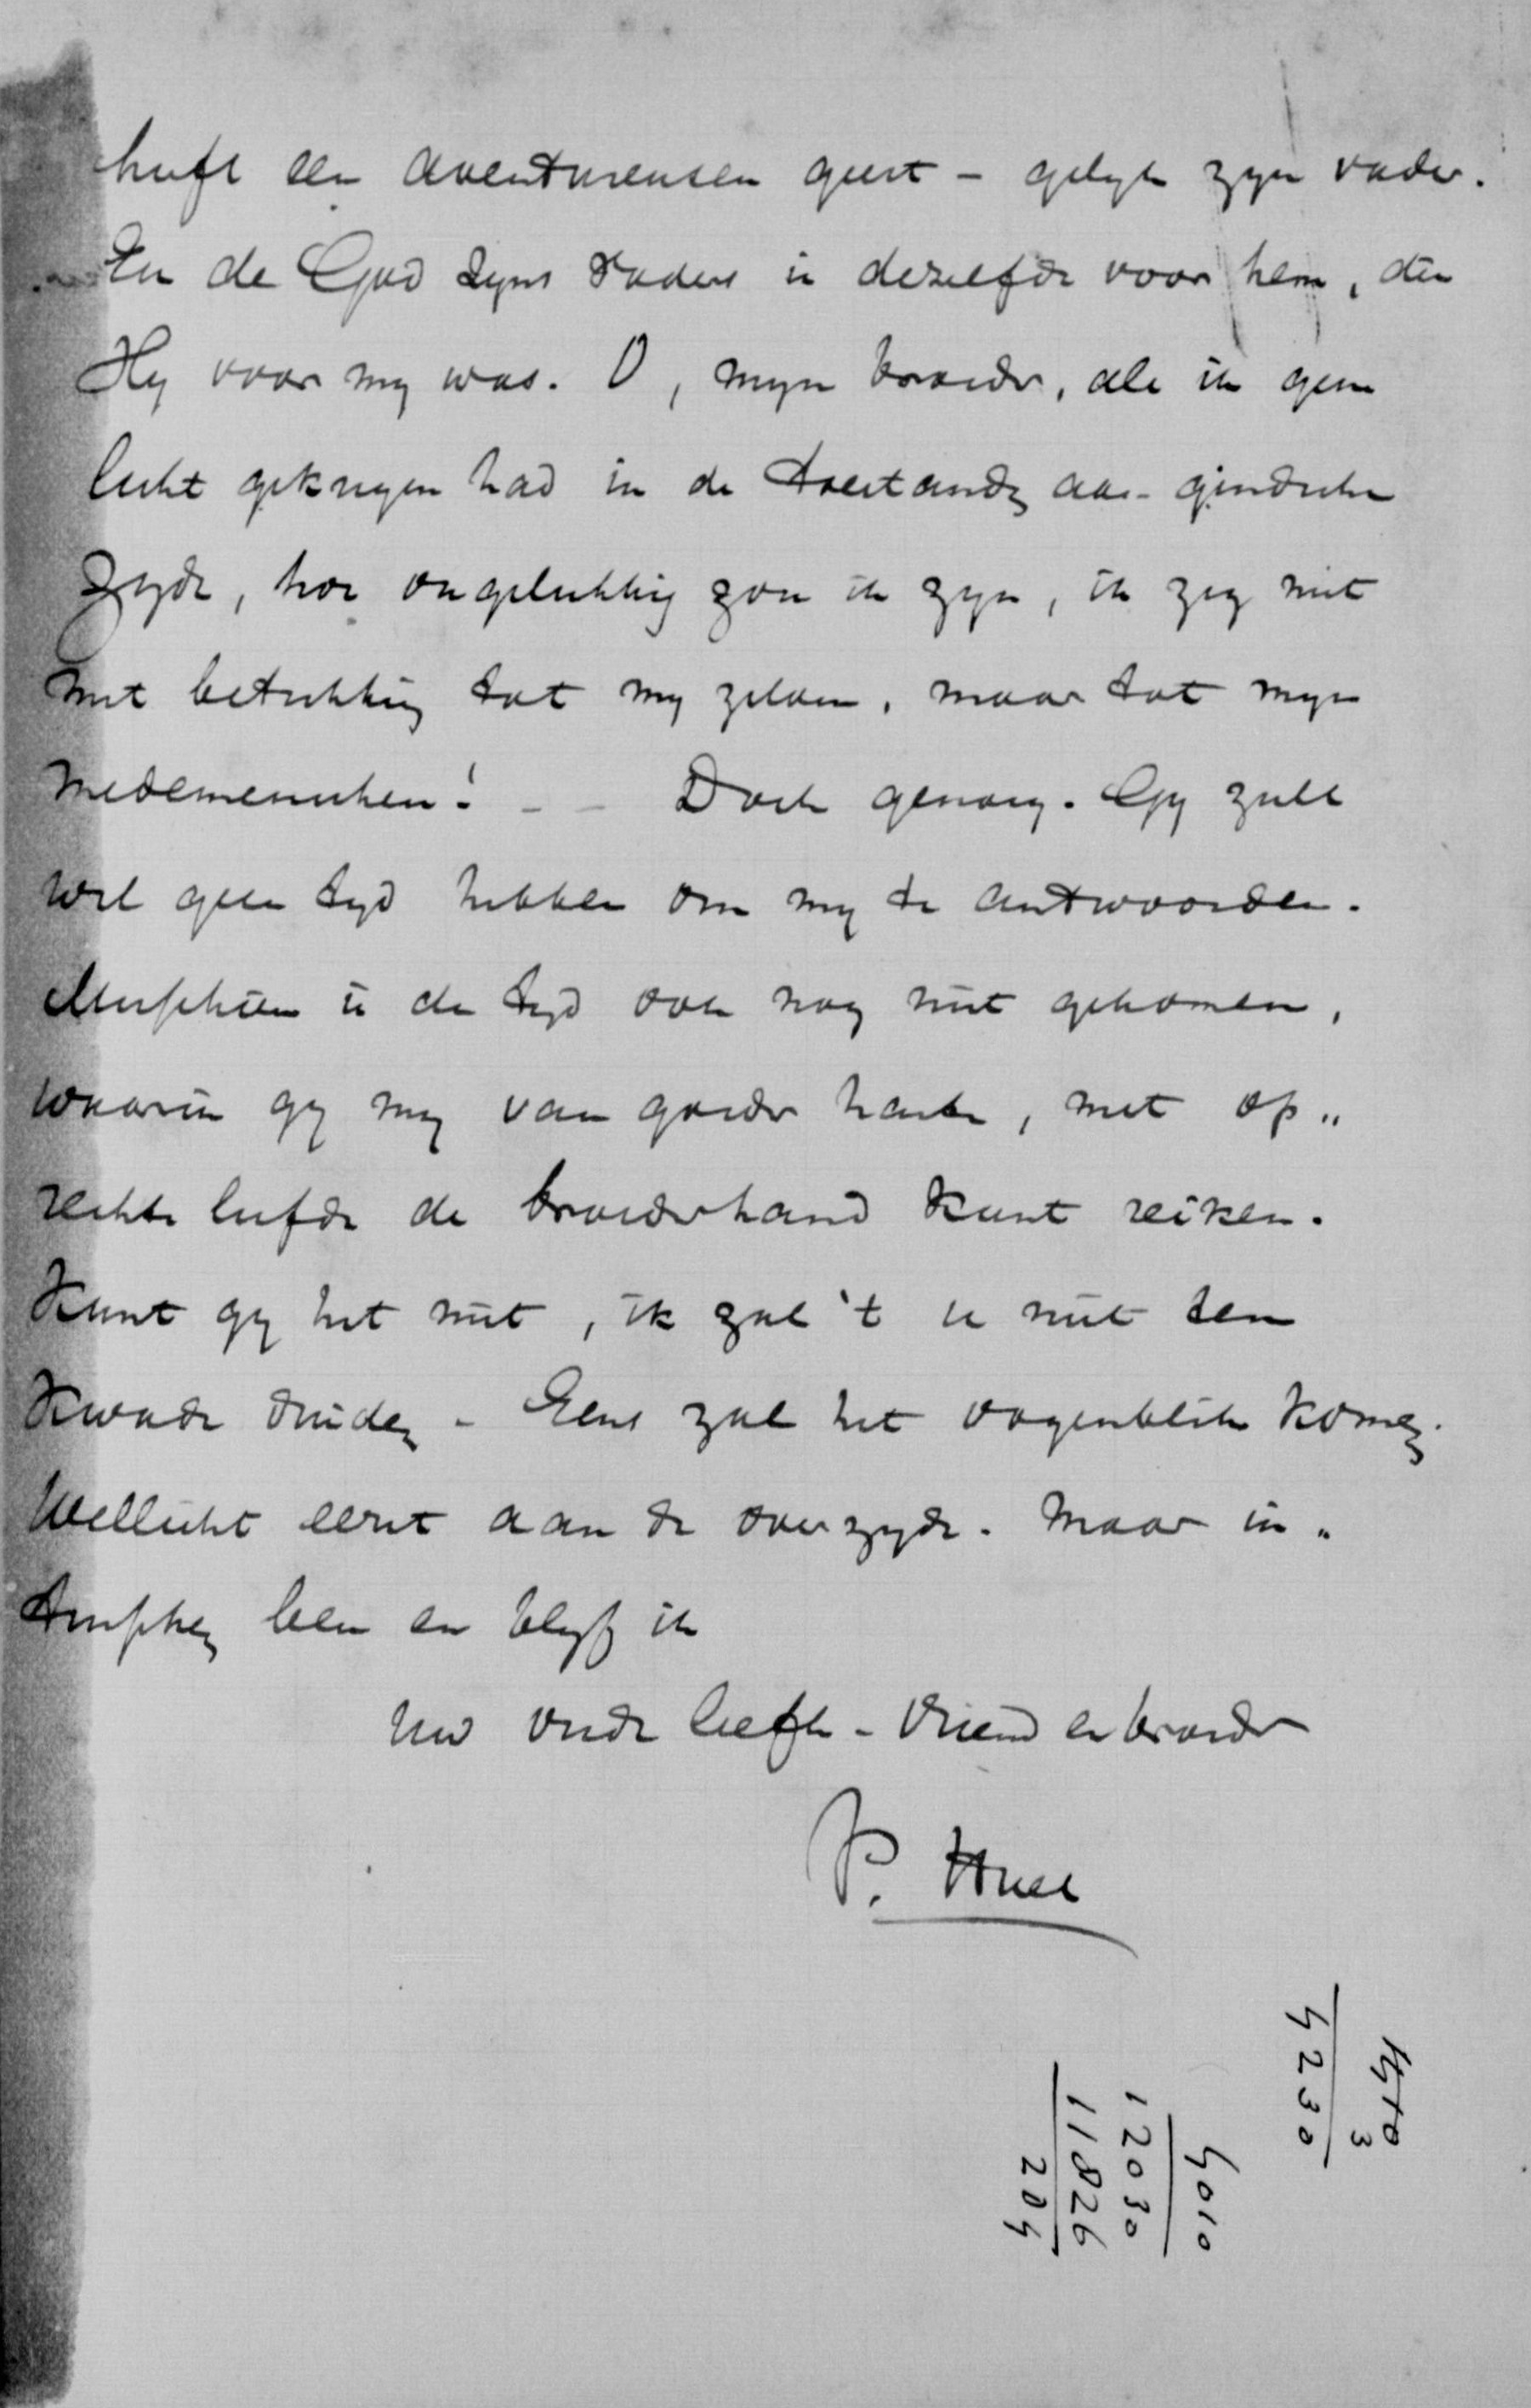 heeft een avontureusen geest – gelyk zyn vader.
En de God zyns vaders is dezelfde voor hem, die
Hy voor my was. O, myn broeder, als ik geen
licht gekregen had in de toestanden aan gindsche
zyde, hoe ongelukkig zou ik zyn, ik zeg niet
met betrekking tot my zelven, maar tot myn
medemenschen! – – Doch genoeg. Gy zult
wel geen tyd hebben om my te antwoorden.
Misschien is de tyd ook nog niet gekomen,
waarin gy my van goeder harte, met op„
rechte liefde de broederhand kunt reiken.
Kunt gy het niet, ik zal 't u niet ten
kwade duiden – Eens zal het oogenblik komen.
Wellicht eerst aan de overzyde. Maar in„
tusschen ben en blyf ik
Uw oude liefh – vriend en broeder
P. Huet
3
4230
4010
12030
11826
204